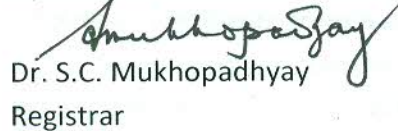 Smukhopadhyay
Dr. S.C. Mukhopadhyay
Registrar